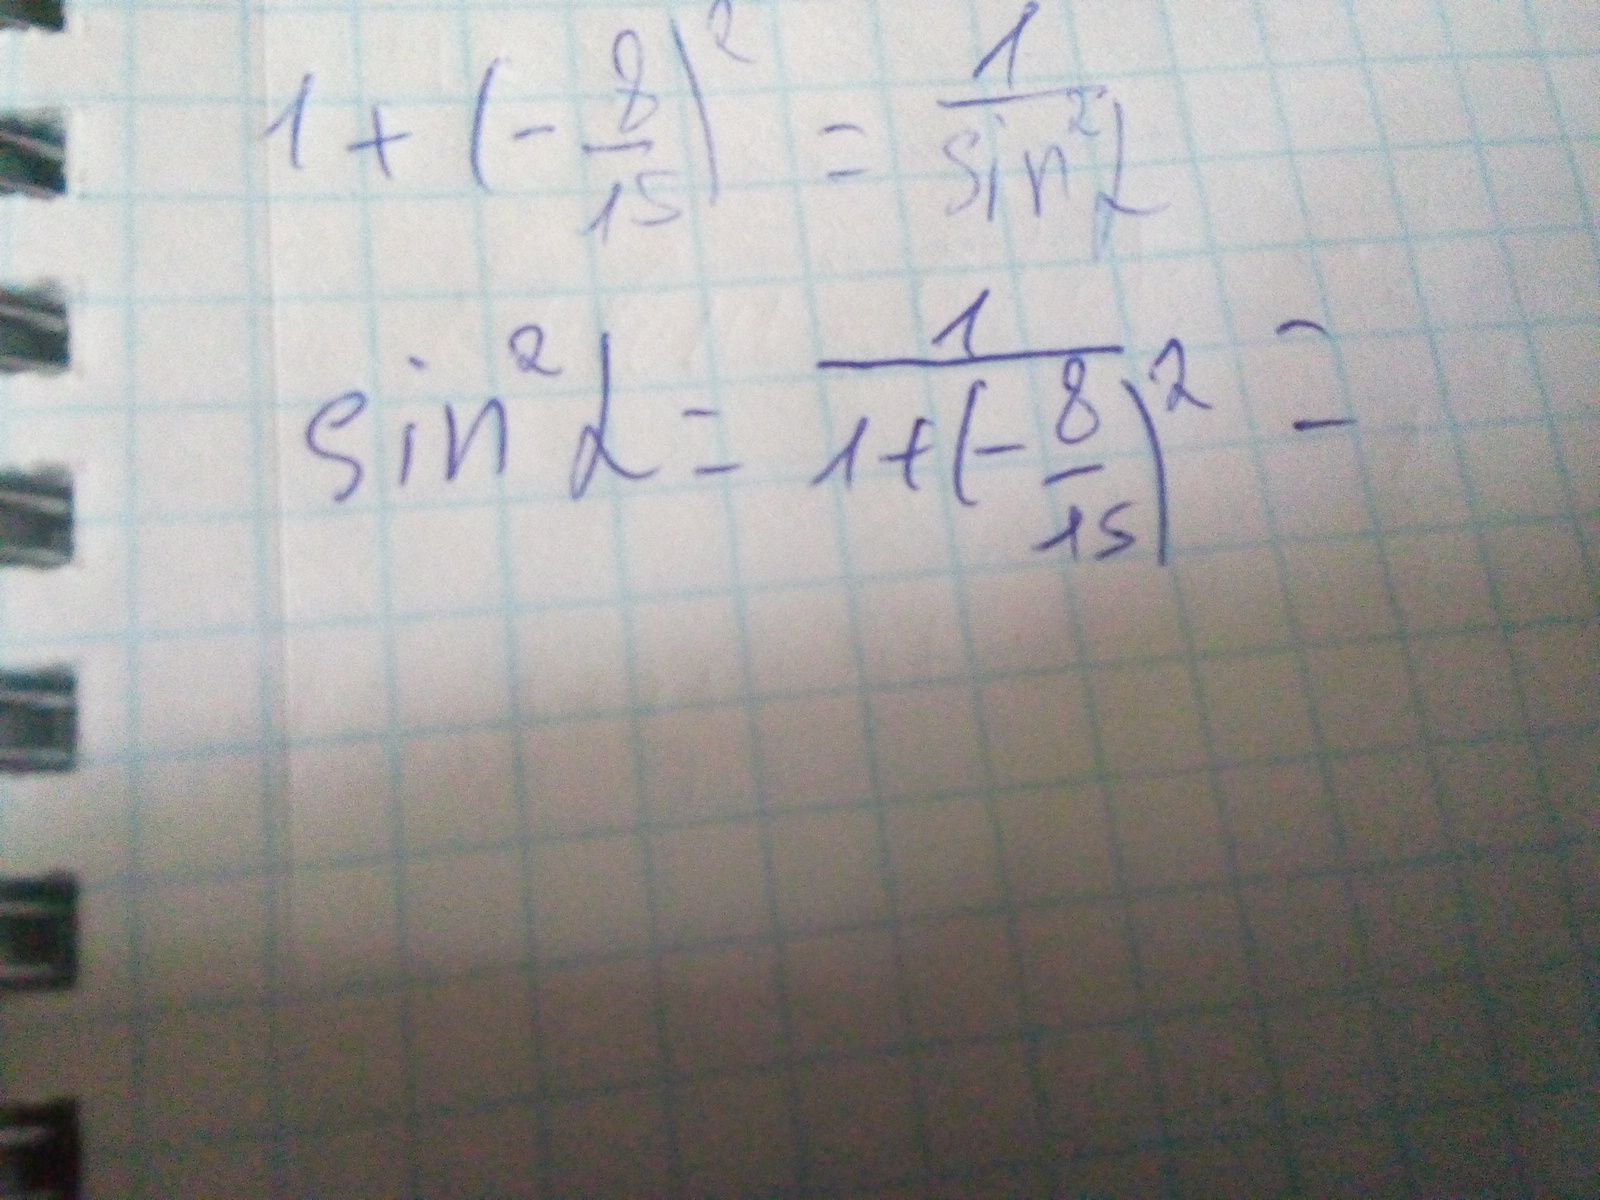 1 + (-8/15)² = 1/sin²α
sin²α = 1/(1+(-8/15)²) =